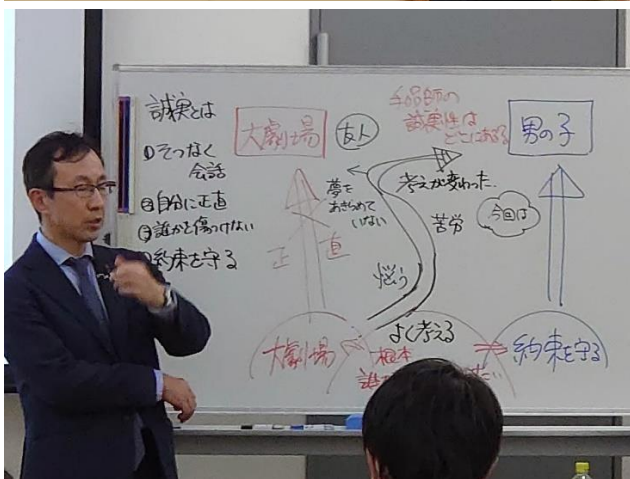 誠実とは
①そつなく
会話
②自分に正直
③誰かを傷つけない
約束を守る
大劇場
友人
手品師の
誠実は
どこにある
男の子
夢を
あきらめて
いない
考えが変わった
苦労
今回は
正直
悩う
よく考える
大劇場
根本
誰
たい
約束を守る